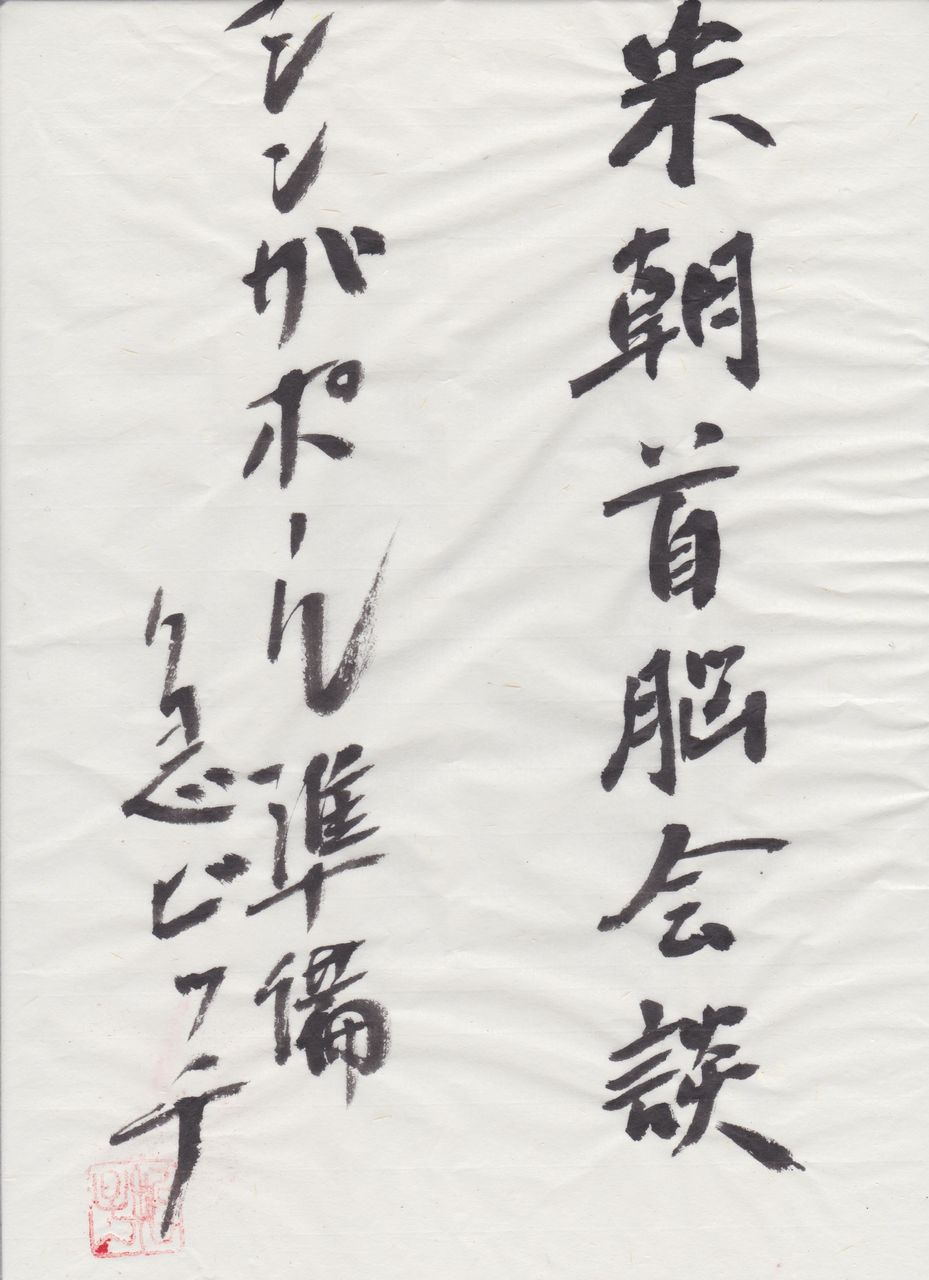 米朝首脳会談
シンガポール準備
急ピッチ